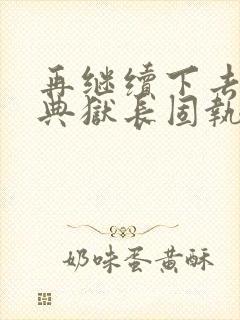 再继续下去
典獄长固執
奶味蛋黄酥